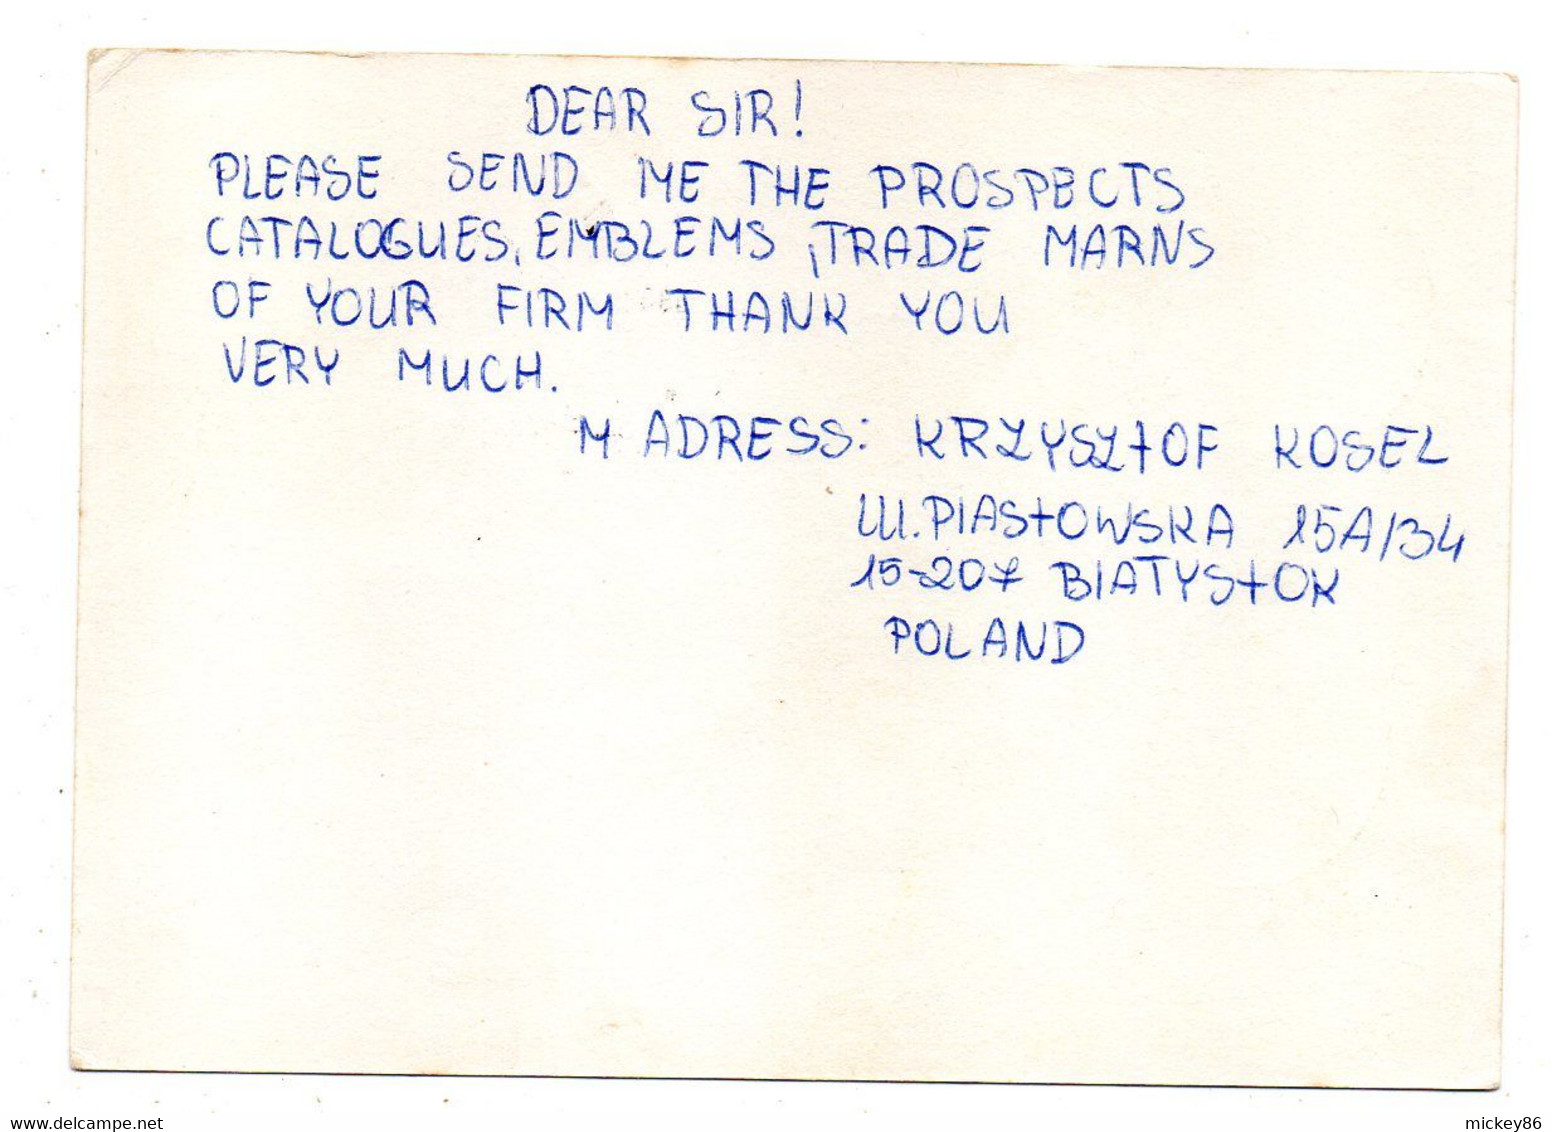 DEAR SIR!
PLEASE SEND ME THE PROSPECTS
CATALOGUES, EMBLEMS, TRADE MARNS
OF YOUR FIRM THANK YOU
VERY MUCH.
M ADRESS: KRZYSZTOF KOSEL
UL. PIASTOWSKA 15A/34
15-207 BIATYSTOK
POLAND
mickey86